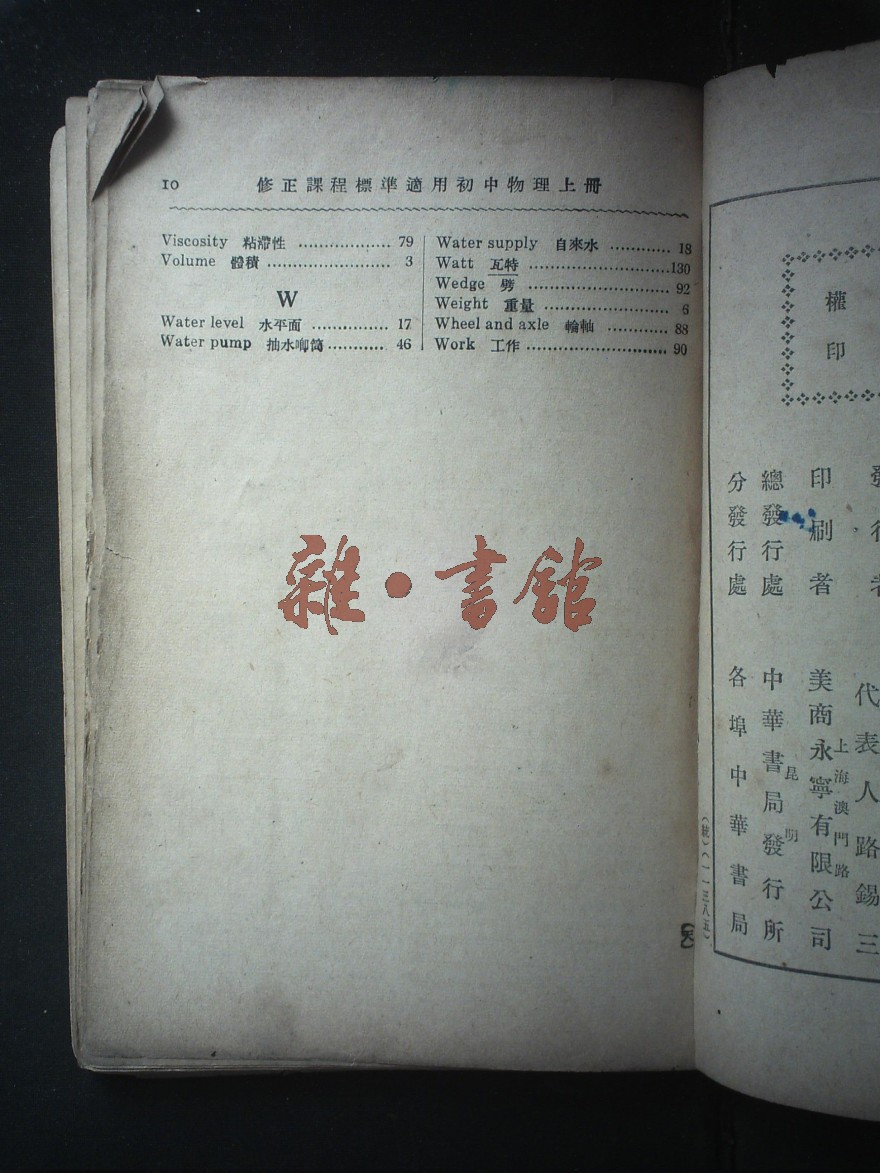 10 修正課程標準適用初中物理上冊
Viscosity 粘滯性 .................. 79
Volume 體積 ........................ 3
W
Water level 水平面 ............... 17
Water pump 抽水唧筒........... 46
Water supply 自來水 ............ 18
Watt 瓦特 ...........................130
Wedge 劈 ........................... 92
Weight 重量 ........................ 6
Wheel and axle 輪軸 ............ 88
Work 工作 ........................... 90
雜·書館
權
印
代表人路錫三
上海澳門路
印刷者 美商永寧有限公司
昆明
總發行處 中華書局發行所
分發行處 各埠中華書局
(一一三八五)